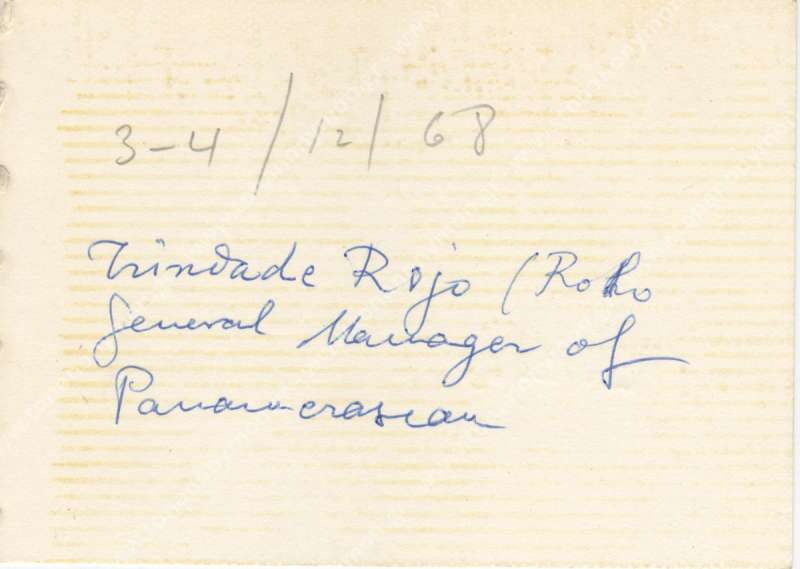 3-4/12/68
Trindade Rojo (Roho
General Manager of